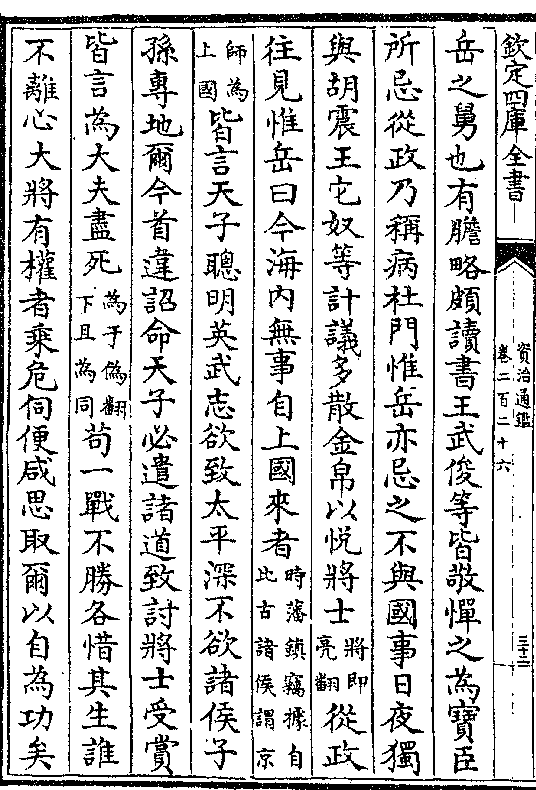 欽定四庫全書
資治通鑑
卷二百二十六
三十二
岳之舅也有膽略頗讀書王武俊等皆敬憚之為寶臣
所忌從政乃稱病杜門惟岳亦忌之不與國事日夜獨
與胡震王它奴等計議多散金帛以悅將士將即亮翻從政
往見惟岳曰今海内無事自上國來者時藩鎮竊據自比古諸侯謂京
師為上國皆言天子聰明英武志欲致太平深不欲諸侯子
孫專地爾今首違詔命天子必遣諸道致討將士受賞
皆言為大夫盡死為于偽翻下且為同苟一戰不勝各惜其生誰
不離心大將有權者乘危伺便咸思取爾以自為功矣